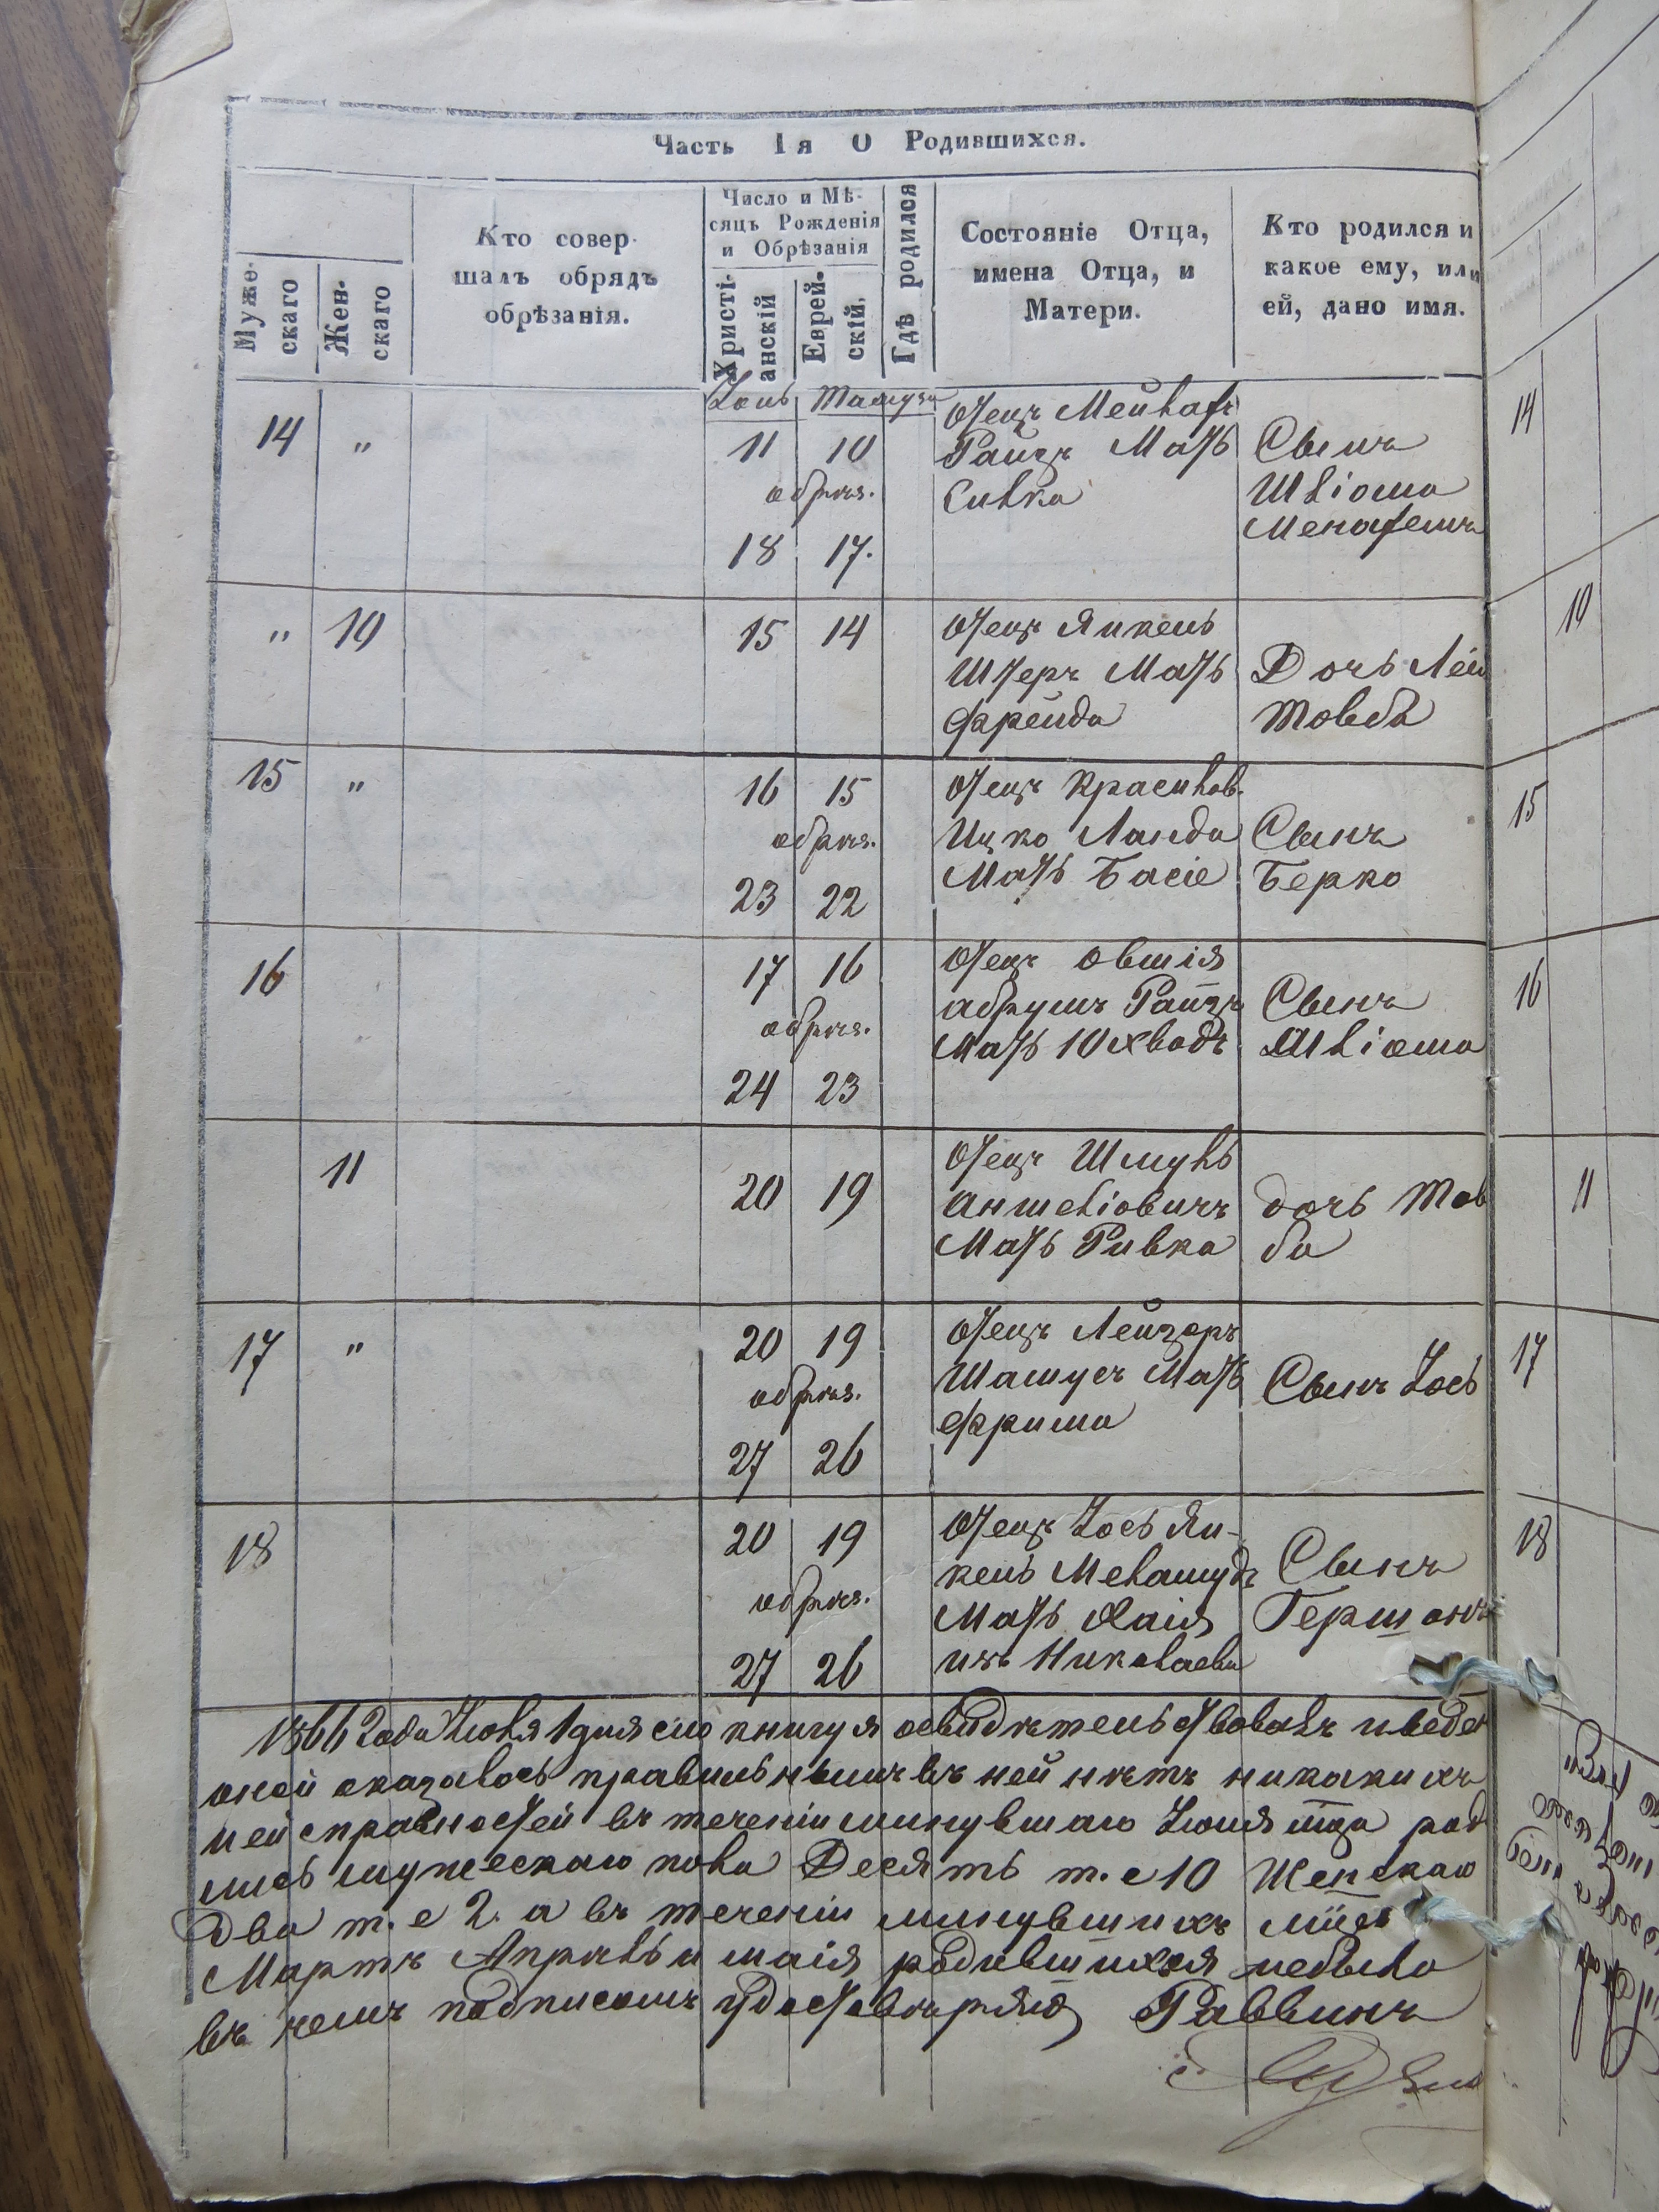 Часть 1я О Родившихся.
Мужескаго
Женскаго
Кто совершалъ обрядъ обрѣзанія.
Число и Мѣсяцъ Рожденія и Обрѣзанія
Христіанскій
Еврейскій.
Гдѣ родился
Состояніе Отца, имена Отца, и Матери.
Кто родился и какое ему, или ей, дано имя.
Іюнь Тамуза
14 " 11 10 Отецъ Мейлахъ
Райзъ Мать Сынъ
обрѣз. Сивка Шліома
18 17. Менаше
" 10 15 14 Отецъ Янкель
Штеръ Мать Дочь Лея
Фрейда Товба
15 " 16 15 Отецъ Красилов.
обрѣз. Ицко Ланда Сынъ
23 22 Мать Басіе Берко
16 17 16 Отецъ Овшія
обрѣз. Абрумъ Райзъ Сынъ
Мать Юхвадъ Шліома
24 23
11 20 19 Отецъ Шмуль
Аншеліовичъ дочь Тов
Мать Ривка ба
17 " 20 19 Отецъ Лейзеръ
обрѣз. Шамусъ Мать Сынъ Іось
27 26 Фрима
18 20 19 Отецъ Іось Ян-
обрѣз. кель Меламудъ Сынъ
Мать Хаія Гершонъ
27 26 изъ Николаева
1866 Года Іюля 1 дня сію книгу я освидѣтельствовалъ и веден
оной оказалось правильнымъ въ ней нѣтъ никакихъ
неисправностей въ теченіи минувшаго Іюня м-ца род
лись мужескаго пола Десять т. е 10 Женскаго
Два т. е 2. а въ теченіи минувшихъ
Мартъ Апрѣль и маія родившихся небыло
въ чемъ подписомъ удостовѣряю Раввинъ
14
10
15
16
11
17
18